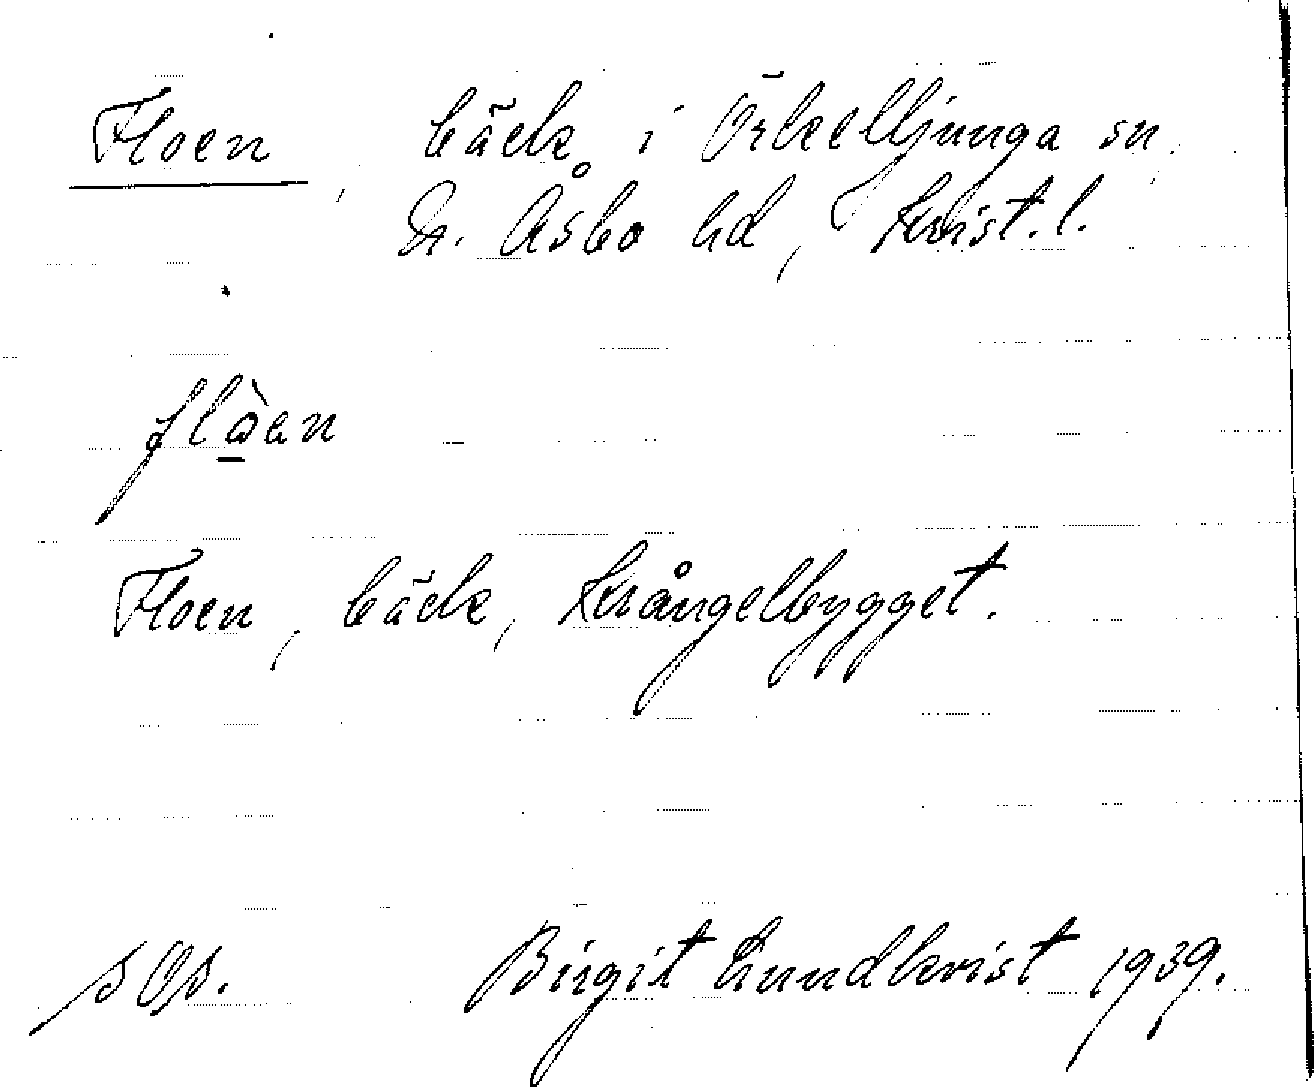 Floen, bäck i Örkelljunga sn,
N. Åsbo hd, Krist. l.
flò̱en
Floen, bäck, Krångelbygget.
Birgit Lundkvist 1939.